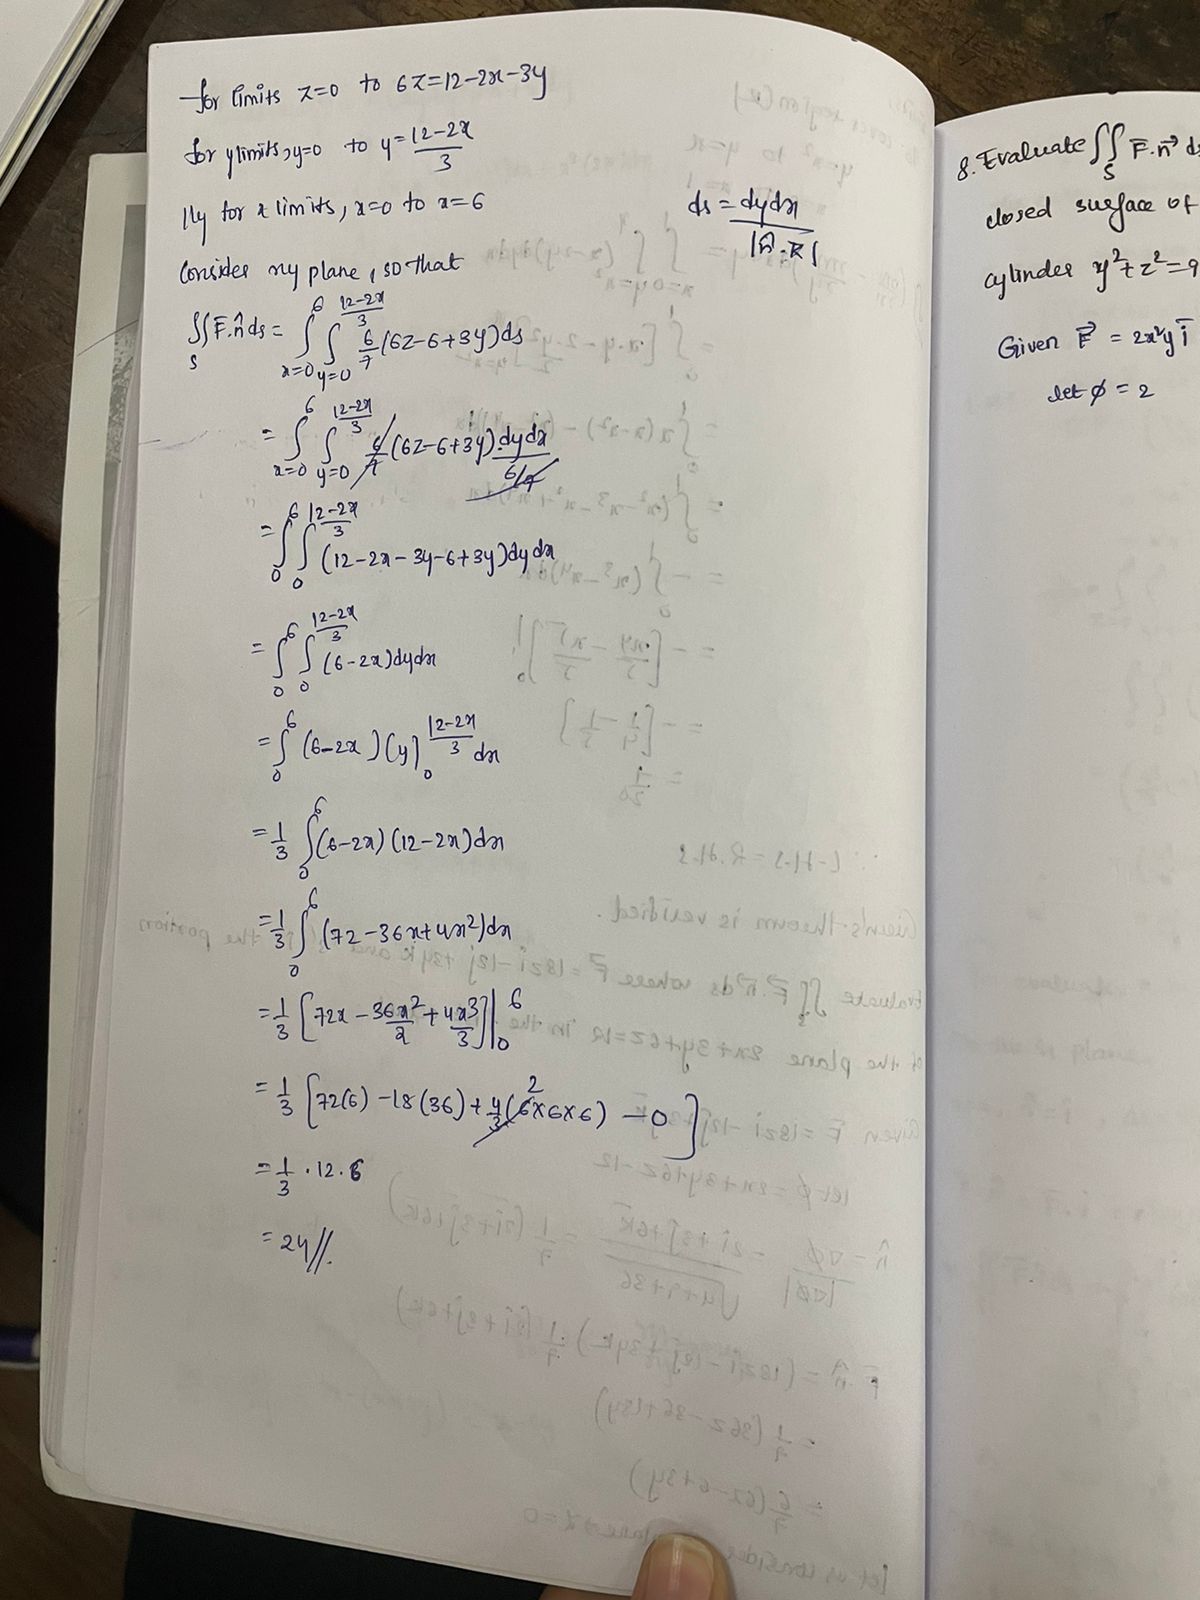 for limits z=0 to 6z=12-2x-3y
for y limits, y=0 to y=\frac{12-2x}{3}
lly for x limits, x=0 to x=6
ds = \frac{dydx}{|n̂.k̄|}
Consider xy plane, so that
∬_S F̄.n̂ ds = ∫_{x=0}^{6} ∫_{y=0}^{\frac{12-2x}{3}} \frac{6}{7}(6z-6+3y)ds
= ∫_{x=0}^{6} ∫_{y=0}^{\frac{12-2x}{3}} \frac{6}{7}(6z-6+3y).\frac{dydx}{6/7}
= ∫_0^6 ∫_0^{\frac{12-2x}{3}} (12-2x-3y-6+3y)dydx
= ∫_0^6 ∫_0^{\frac{12-2x}{3}} (6-2x)dydx
= ∫_0^6 (6-2x)(y)_0^{\frac{12-2x}{3}} dx
= \frac{1}{3} ∫_0^6 (6-2x)(12-2x)dx
= \frac{1}{3} ∫_0^6 (72-36x+4x²)dx
= \frac{1}{3} [72x - \frac{36x²}{2} + \frac{4x³}{3}]|_0^6
= \frac{1}{3} [72(6) - 18(36) + \frac{4}{3}(6×6×6) - 0]
2
= \frac{1}{3} . 12 . 6
= 24//.
8. Evaluate ∬_S F̄.n̄ ds
closed surface of
cylinder y²+z²=9
Given F̄ = 2x²y ī
let ϕ = 2